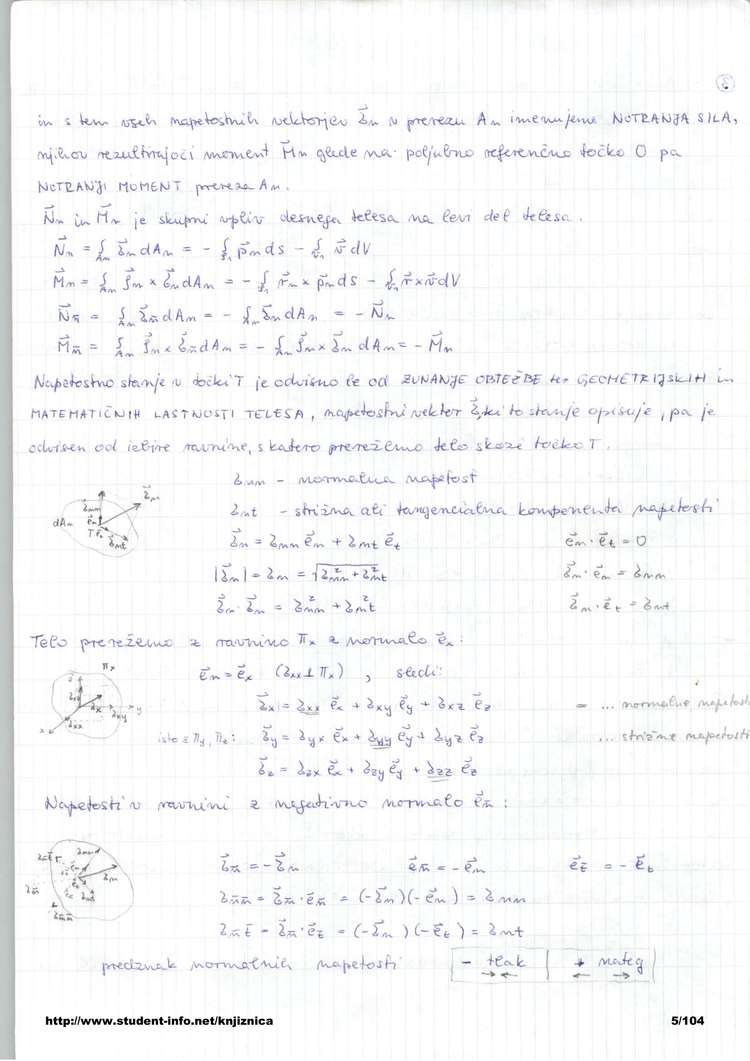 5
in s tem vseh napetostnih vektorjev σ⃗n v prerezu An imenujemo NOTRANJA SILA,
njihov rezultirajoči moment M⃗n glede na poljubno referenčno točko O pa
NOTRANJI MOMENT prereza An.
N⃗n in M⃗n je skupni vpliv desnega telesa na levi del telesa.
N⃗n = ∫An σ⃗n dAn = - ∫S1 p⃗n dS - ∫V1 v⃗ dV
M⃗n = ∫An ρ⃗n × σ⃗n dAn = - ∫S1 r⃗n × p⃗n dS - ∫V1 r⃗ × v⃗ dV
N⃗n̄ = ∫An σ⃗n̄ dAn = - ∫An σ⃗n dAn = - N⃗n
M⃗n̄ = ∫An ρ⃗n × σ⃗n̄ dAn = - ∫An ρ⃗n × σ⃗n dAn = - M⃗n
Napetostno stanje v točki T je odvisno le od ZUNANJE OBTEŽBE ter GEOMETRIJSKIH in
MATEMATIČNIH LASTNOSTI TELESA, napetostni vektor σ⃗, ki to stanje opisuje, pa je
odvisen od izbire ravnine, s katero prerežemo telo skozi točko T.
σnn - normalna napetost
σnt - strižna ali tangencialna komponenta napetosti
dAn σ⃗nn σ⃗n e⃗n T e⃗t σ⃗nt
σ⃗n = σnn e⃗n + σnt e⃗t e⃗n · e⃗t = 0
|σ⃗n| = σn = √(σnn² + σnt²) σ⃗n · e⃗n = σnn
σ⃗n · σ⃗n = σnn² + σnt² σ⃗n · e⃗t = σnt
Telo prerežemo z ravnino πx z normalo e⃗x:
πx z σxz σx y σxy x σxx
e⃗n = e⃗x (σxx ⊥ πx), sledi:
σ⃗x = σxx e⃗x + σxy e⃗y + σxz e⃗z = ... normalne napetosti
isto z πy, πz: σ⃗y = σyx e⃗x + σyy e⃗y + σyz e⃗z ... strižne napetosti
σ⃗z = σzx e⃗x + σzy e⃗y + σzz e⃗z
Napetosti v ravnini z negativno normalo e⃗n̄:
σ⃗n̄ = - σ⃗n e⃗n̄ = - e⃗n e⃗t̄ = - e⃗t
σn̄n̄ = σ⃗n̄ · e⃗n̄ = (-σ⃗n)(-e⃗n) = σnn
σn̄t̄ = σ⃗n̄ · e⃗t̄ = (-σ⃗n)(-e⃗t) = σnt
predznak normalnih napetosti - tlak + nateg
→ ← ← →
http://www.student-info.net/knjiznica 5/104